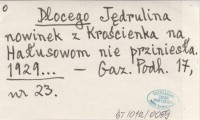 Dlocego Jędrulina
nowinek z Krościenka na
Hałusowom nie przyniesła.
1929... — Gaz. Podh. 17,
nr 23.